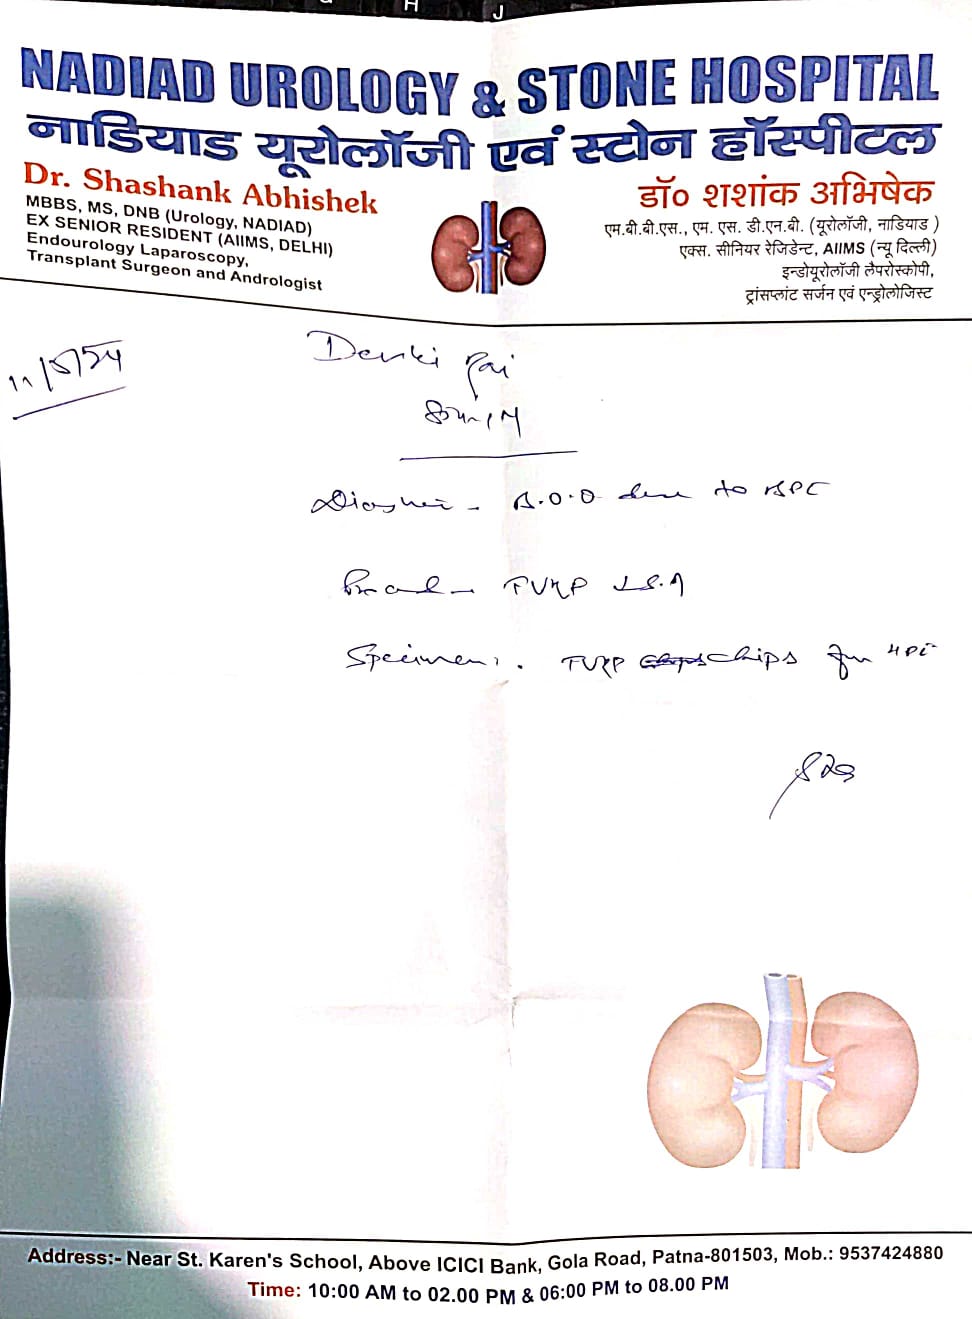 H
J
NADIAD UROLOGY & STONE HOSPITAL
नाडियाड यूरोलॉजी एवं स्टोन हॉस्पीटल
Dr. Shashank Abhishek
MBBS, MS, DNB (Urology, NADIAD)
EX SENIOR RESIDENT (AIIMS, DELHI)
Endourology Laparoscopy,
Transplant Surgeon and Andrologist
डॉ० शशांक अभिषेक
एम.बी.बी.एस., एम. एस. डी.एन.बी. (यूरोलॉजी, नाडियाड )
एक्स. सीनियर रेजिडेन्ट, AIIMS (न्यू दिल्ली)
इन्डोयूरोलॉजी लैपरोस्कोपी,
ट्रांसप्लांट सर्जन एवं एन्ड्रोलोजिस्ट
Rai
B.O.O due to
TURP
Specimen. TURP chips for HPE
Address:- Near St. Karen's School, Above ICICI Bank, Gola Road, Patna-801503, Mob.: 9537424880
Time: 10:00 AM to 02.00 PM & 06:00 PM to 08.00 PM